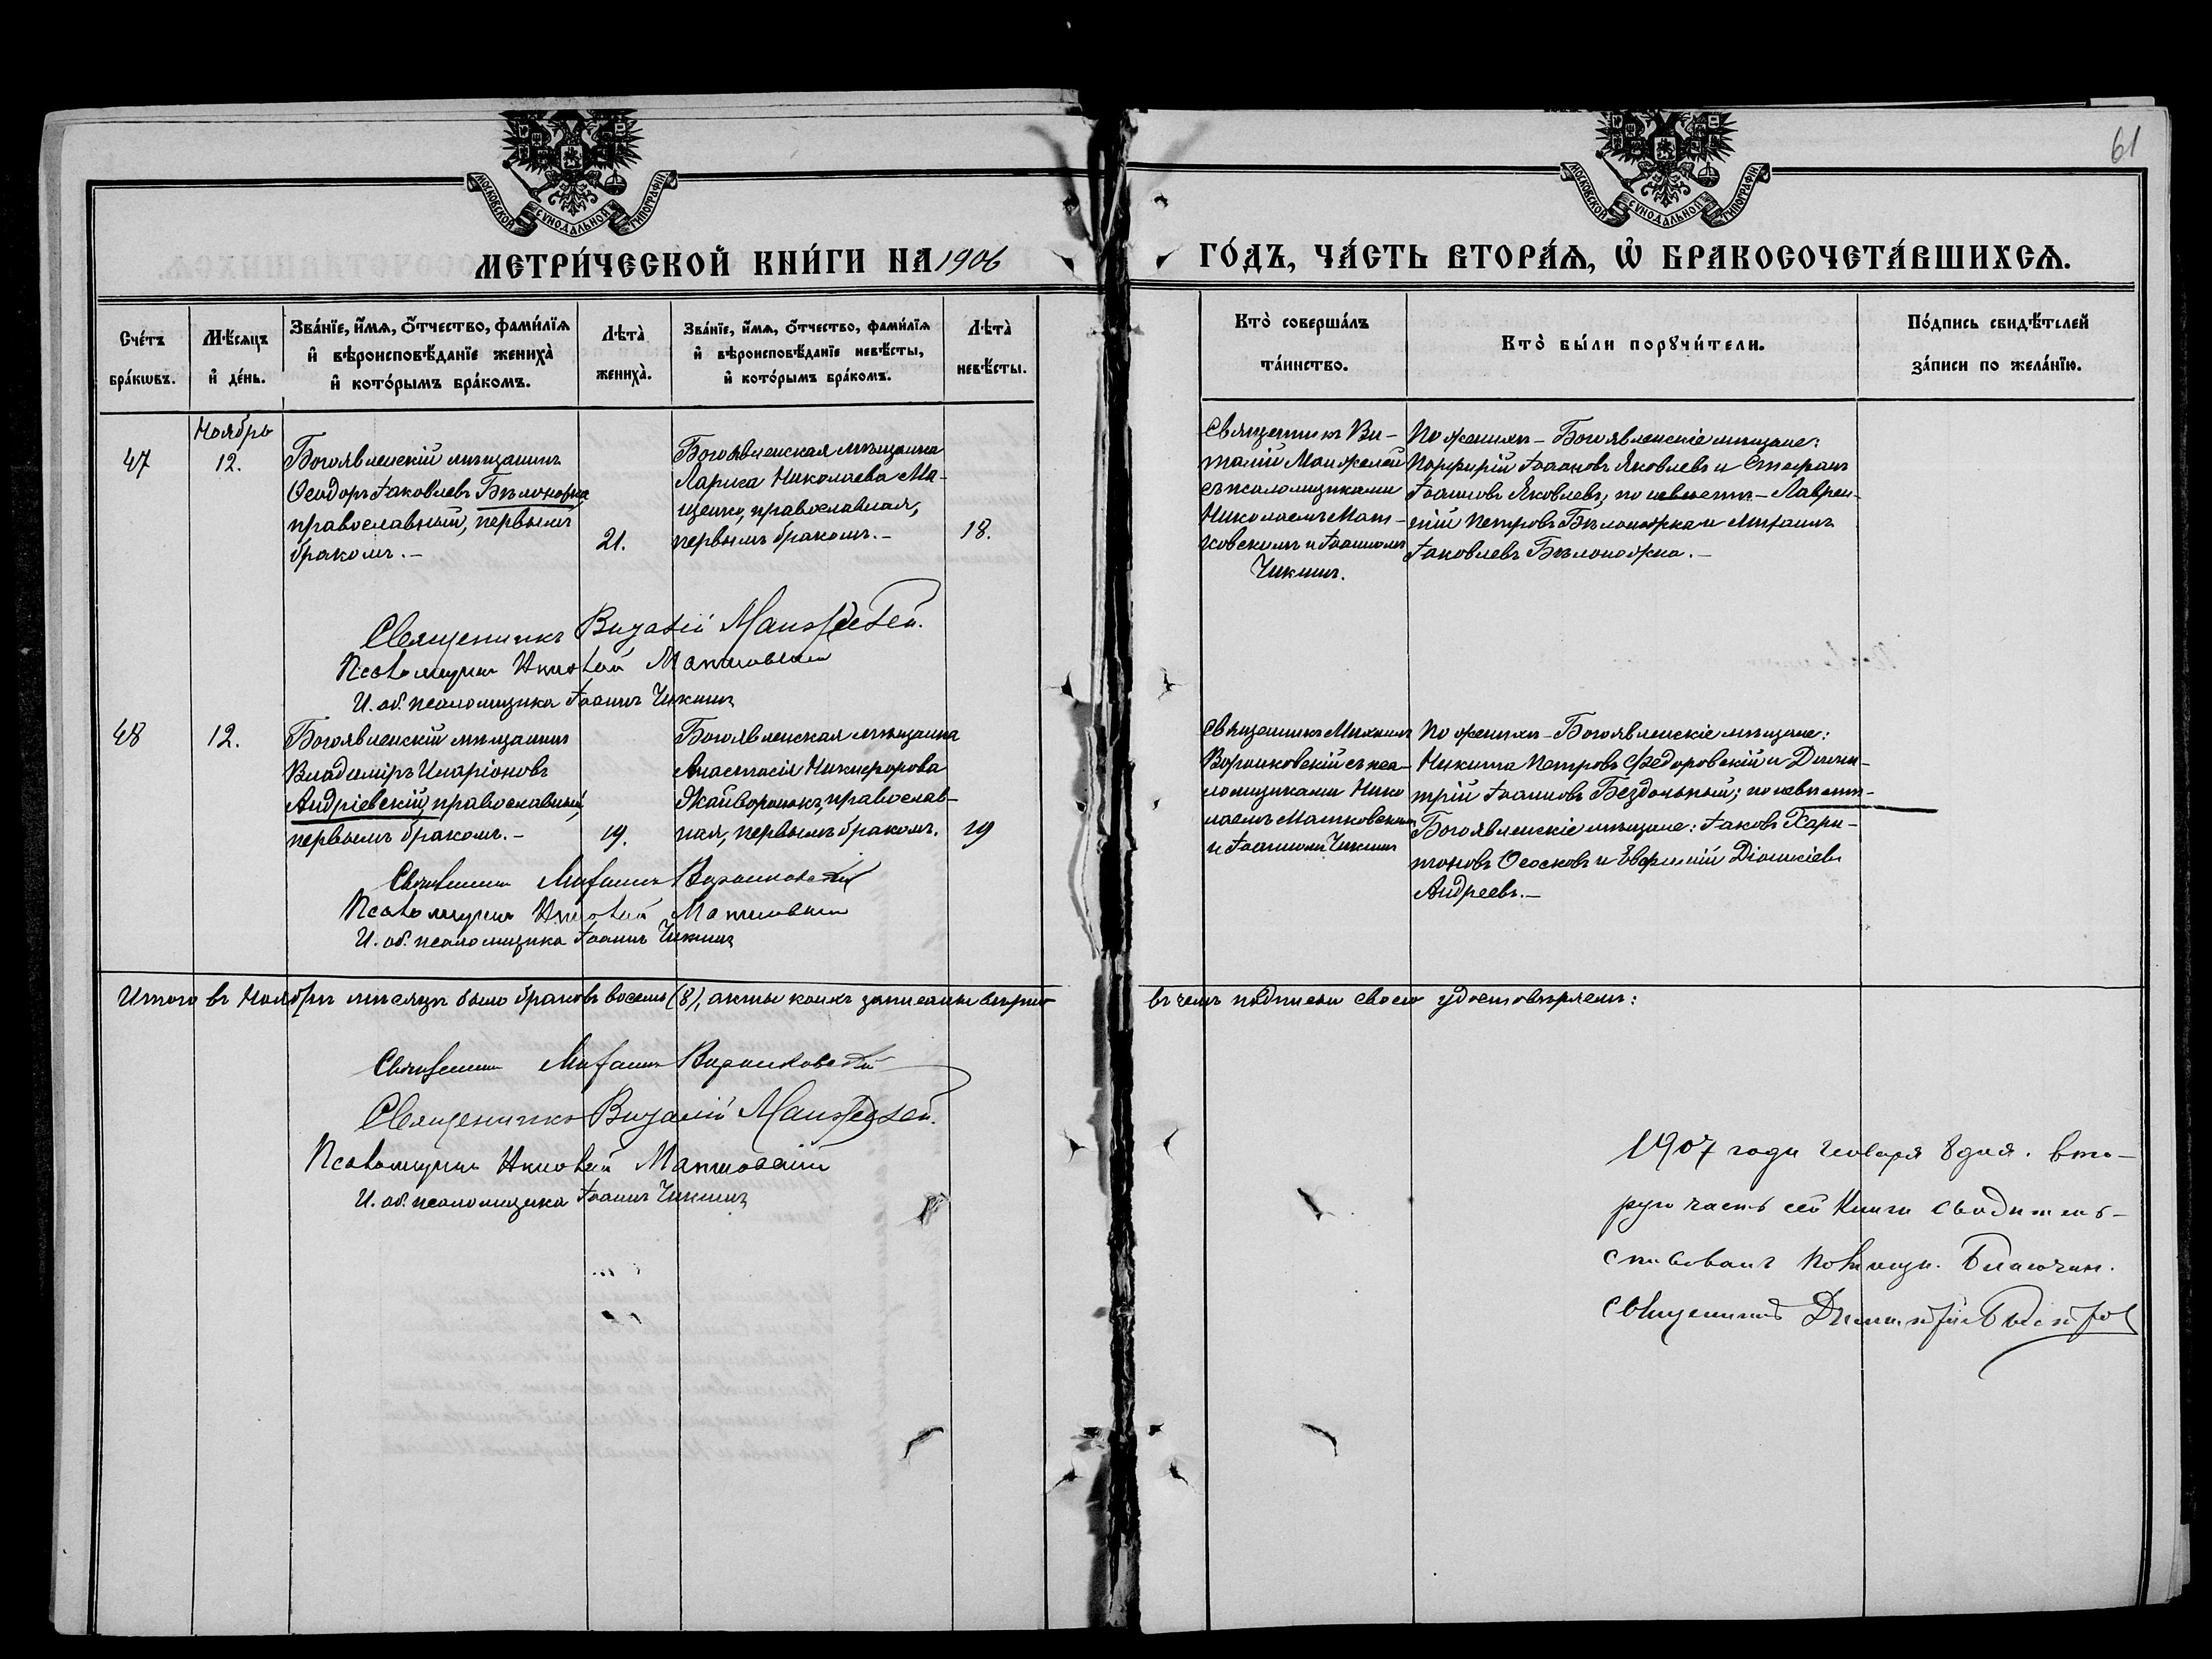 61
МОСКОВСКОЙ СѴНОДАЛЬНОЙ ТИПОГРАФІИ
МОСКОВСКОЙ СѴНОДАЛЬНОЙ ТИПОГРАФІИ
МЕТРИ́ЧЕСКОЙ КНИ́ГИ НА 1906
ГО́ДЪ, ЧА́СТЬ ВТОРА́Ѧ, Ѡ҆ БРАКОСОЧЕТА́ВШИХСѦ.
Сче́тъ
бра́кѡвъ.
Мѣ́сѧцъ
и҆ де́нь.
Зва́нїе, и҆́мѧ, ѻ҆́тчество, фами́лїѧ
и҆ вѣроисповѣ́данїе жениха̀
и҆ кото́рымъ бра́комъ.
Лѣта̀
жениха̀.
Зва́нїе, и҆́мѧ, ѻ҆́тчество, фами́лїѧ
и҆ вѣроисповѣ́данїе невѣ́сты,
и҆ кото́рымъ бра́комъ.
Лѣта̀
невѣ́сты.
Кто̀ соверша́лъ
та́инство.
Кто̀ бы́ли порꙋчи́тели.
По́дпись свидѣ́телей
за́писи по жела́нїю.
47
Ноябрь
12.
Богоявленскій мѣщанинъ
Ѳеодоръ Іаковлевъ Бѣлоножка
православный, первымъ
бракомъ.-
21.
Богоявленская мѣщанка
Лариса Николаева Ма-
щенко, православная,
первымъ бракомъ.-
18.
Священникъ Ви-
талій Манжелей
съ псаломщиками
Николаемъ Мат-
ковскимъ и Іоанномъ
Чикинъ.
По женихѣ - Богоявленскіе мѣщане:
Порфирій Іоанновъ Яковлевъ и Стефанъ
Іоанновъ Яковлевъ; по невѣстѣ - Лаврен-
тій Петровъ Бѣлоножка и Михаилъ
Іаковлевъ Бѣлоножка.-
Священникъ Виталій Манжелей.
Псаломщикъ Николай Матковскій
И. об. псаломщика Іоаннъ Чикинъ
48
12.
Богоявленскій мѣщанинъ
Владиміръ Иларіоновъ
Андріевскій, православный,
первымъ бракомъ.-
19.
Богоявленская мѣщанка
Анастасія Никифорова
Жайворонокъ, православ-
ная, первымъ бракомъ.
19
Священникъ Михаилъ
Воронковскій съ пса-
ломщиками Нико
лаемъ Матковскимъ
и Іоанномъ Чикинъ
По женихѣ - Богоявленскіе мѣщане:
Никита Петровъ Федоровскій и Дими-
трій Іоанновъ Бездольный; по невѣстѣ -
Богоявленскіе мѣщане: Іаковъ Хари-
тоновъ Ососковъ и Евфимій Діонисіевъ
Андреевъ.-
Священникъ Михаилъ Воронковскій
Псаломщикъ Николай Матковскій
И. об. псаломщика Іоаннъ Чикинъ
Итого въ Ноябрѣ мѣсяцѣ было браковъ восемь (8), акты коихъ записаны вѣрно
въ чемъ подписью своею удостовѣряемъ:
Священникъ Михаилъ Воронковскій
Священникъ Виталій Манжелей.
Псаломщикъ Николай Матковскій
И. об. псаломщика Іоаннъ Чикинъ
1907 года Января 8 дня. вто-
рую часть сей Книги свидѣтель-
ствовалъ Помощн. Благочин.
священникъ Димитрій